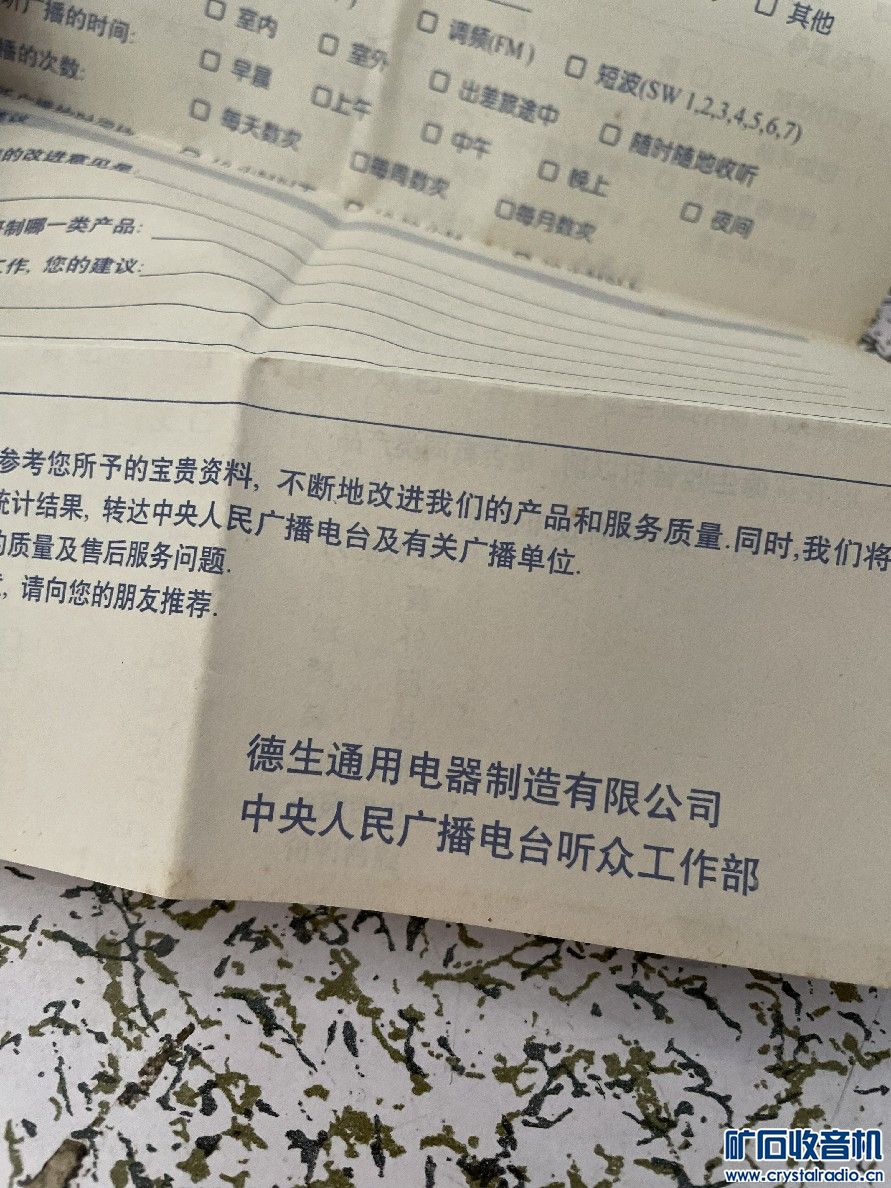 □ 其他
□ 调频(FM ) □ 短波(SW 1,2,3,4,5,6,7)
听广播的时间: □ 室内 □ 室外 □ 出差旅途中 □ 随时随地收听
播的次数: □ 早晨 □上午 □ 中午 □ 晚上 □ 夜间
□ 每天数次 □每周数次 □每月数次
的改进意见是:
制哪一类产品:
工作, 您的建议:
参考您所予的宝贵资料, 不断地改进我们的产品和服务质量.同时,我们将
统计结果, 转达中央人民广播电台及有关广播单位.
的质量及售后服务问题.
, 请向您的朋友推荐.
德生通用电器制造有限公司
中央人民广播电台听众工作部
矿石收音机
www.crystalradio.cn